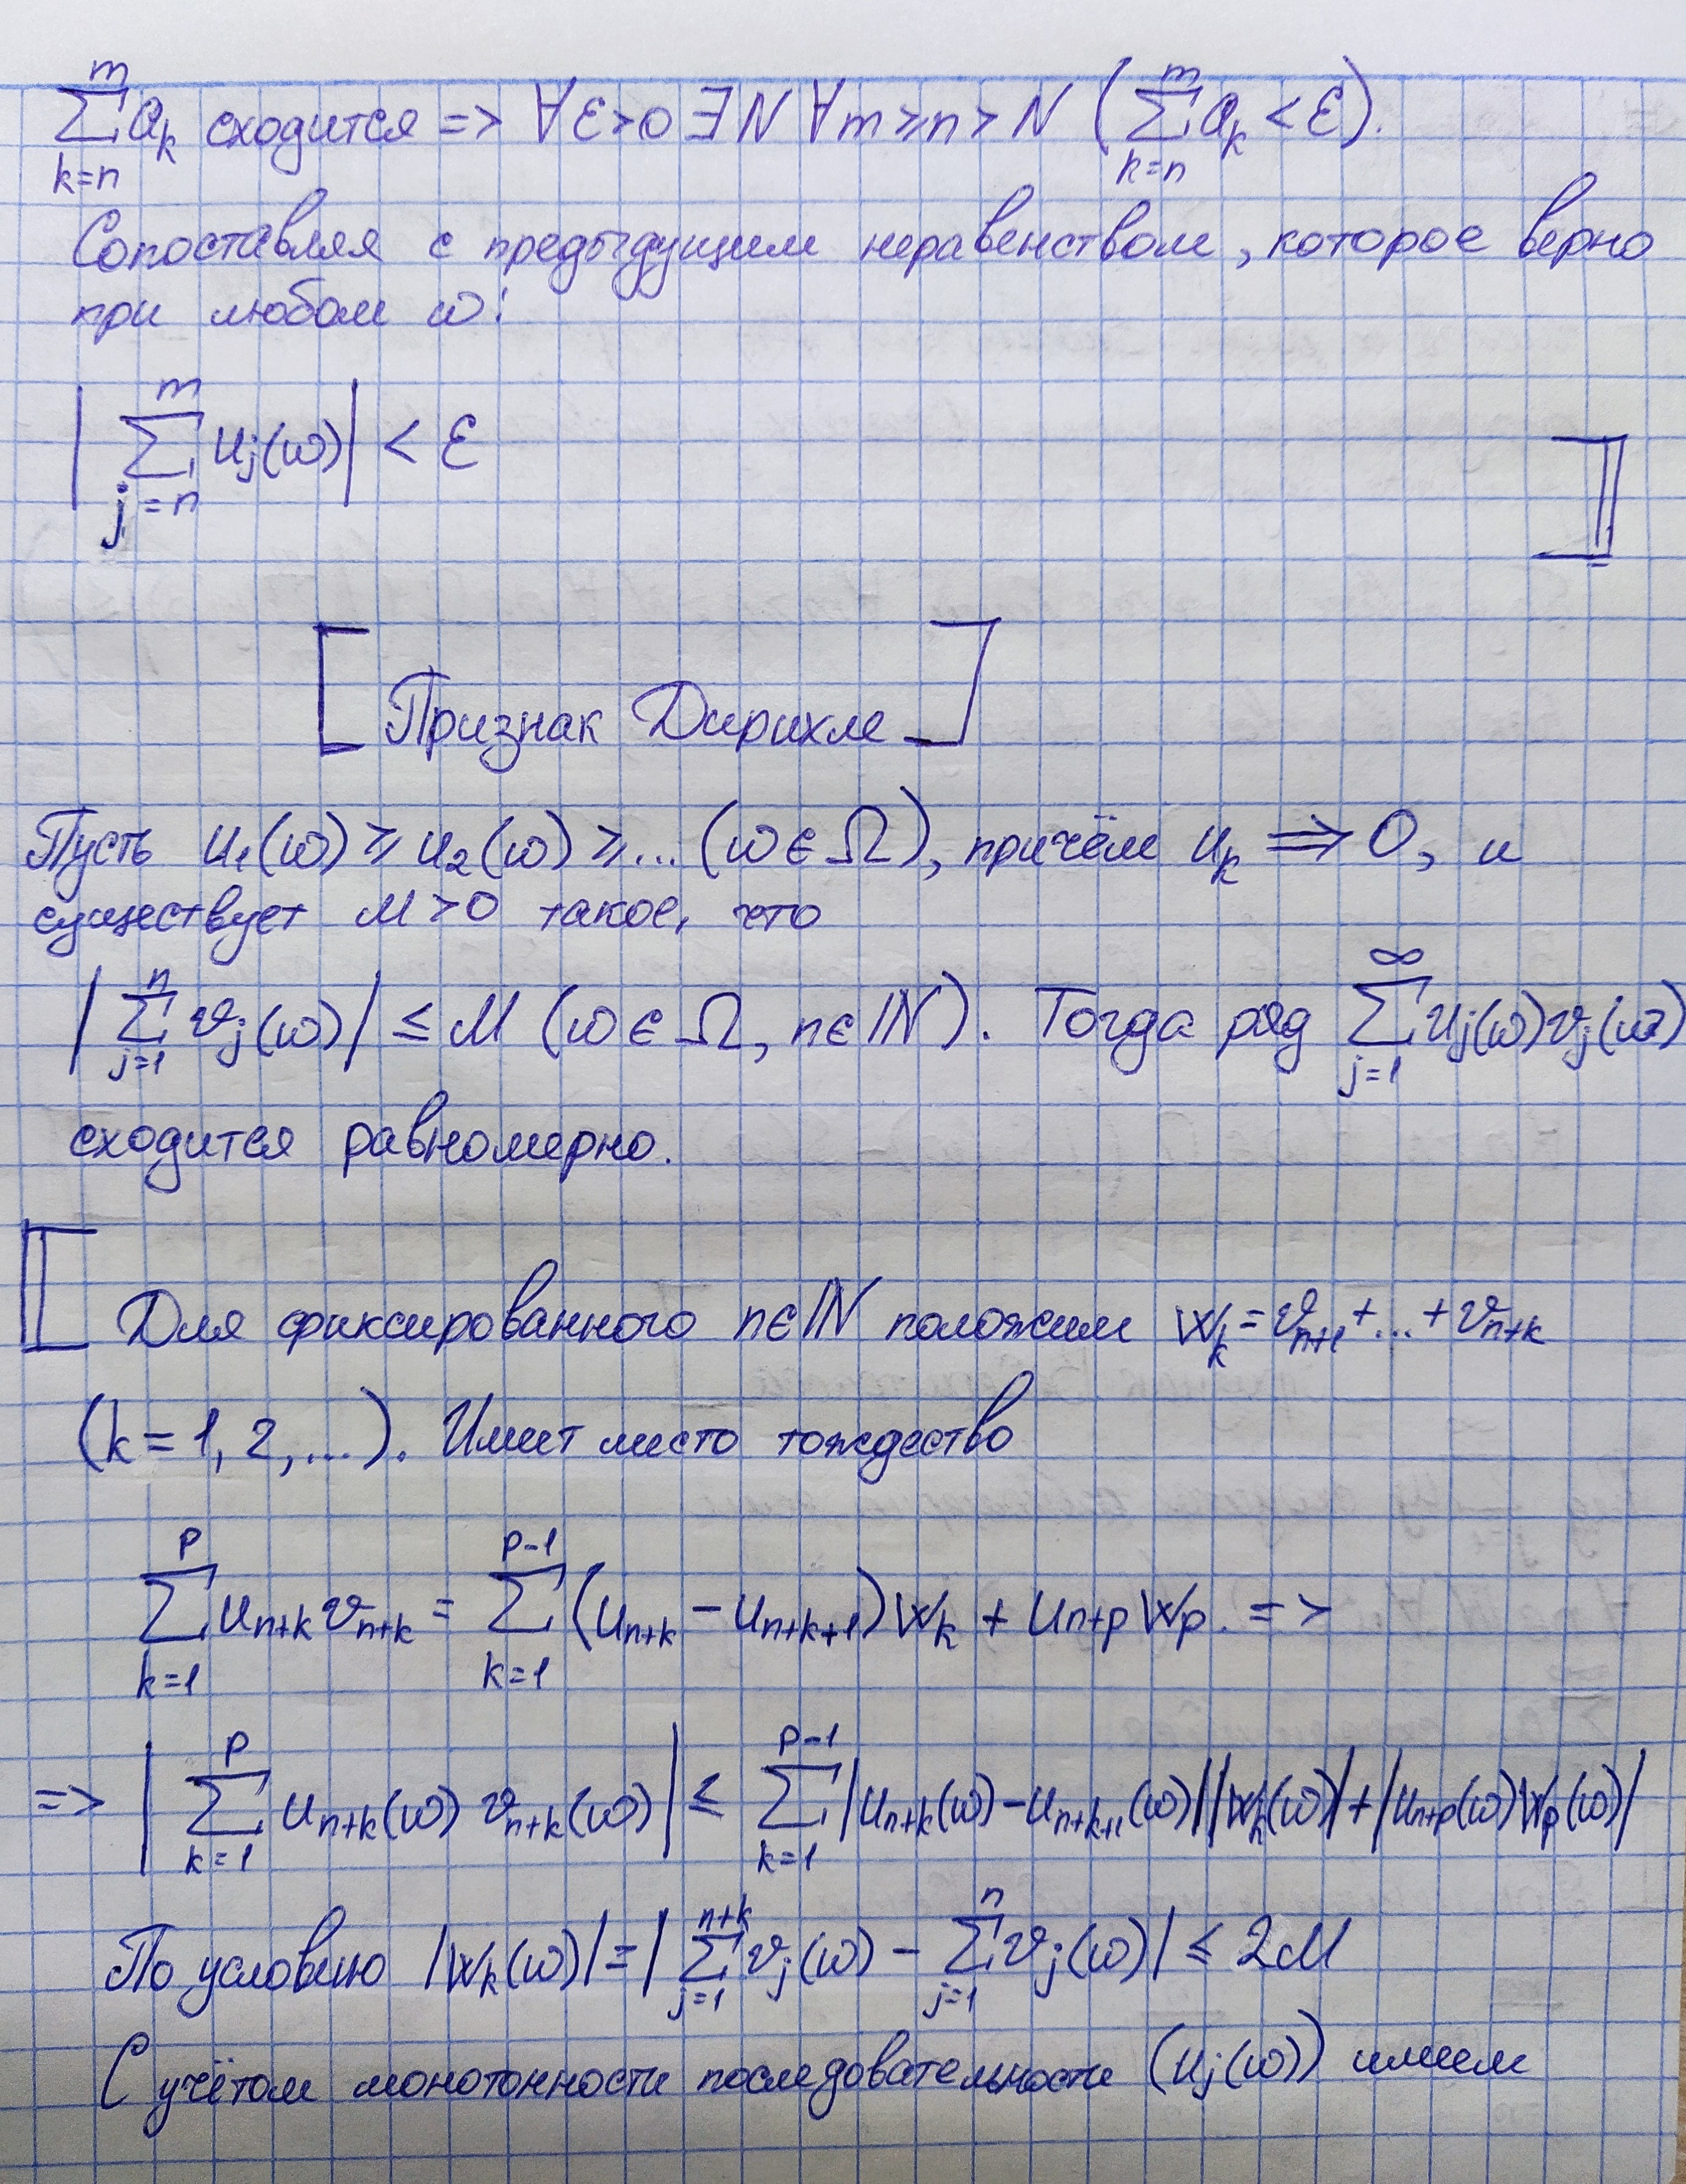 $\sum_{k=n}^{m} a_k$ сходится => $\forall \varepsilon > 0 \; \exists N \; \forall m \geq n > N \; \left( \sum_{k=n}^{m} a_k < \varepsilon \right)$.
Сопоставляя с предыдущим неравенством, которое верно
при любом $\omega$:
$\left| \sum_{j=n}^{m} u_j(\omega) \right| < \varepsilon$ ]]
[ Признак Дирихле ]
Пусть $u_1(\omega) \geq u_2(\omega) \geq \ldots (\omega \in \Omega)$, причём $u_k \rightrightarrows 0$, и
существует $M > 0$ такое, что
$\left| \sum_{j=1}^{n} v_j(\omega) \right| \leq M \; (\omega \in \Omega, n \in \mathbb{N})$. Тогда ряд $\sum_{j=1}^{\infty} u_j(\omega) v_j(\omega)$
сходится равномерно.
[[ Для фиксированного $n \in \mathbb{N}$ положим $w_k = v_{n+1} + \ldots + v_{n+k}$
$(k = 1, 2, \ldots)$. Имеет место тождество
$\sum_{k=1}^{p} u_{n+k} v_{n+k} = \sum_{k=1}^{p-1} (u_{n+k} - u_{n+k+1}) w_k + u_{n+p} w_p.$ =>
=> $\left| \sum_{k=1}^{p} u_{n+k}(\omega) v_{n+k}(\omega) \right| \leq \sum_{k=1}^{p-1} |u_{n+k}(\omega) - u_{n+k+1}(\omega)| |w_k(\omega)| + |u_{n+p}(\omega) w_p(\omega)|$
По условию $|w_k(\omega)| = \left| \sum_{j=1}^{n+k} v_j(\omega) - \sum_{j=1}^{n} v_j(\omega) \right| \leq 2M$
С учётом монотонности последовательности $(u_j(\omega))$ имеем